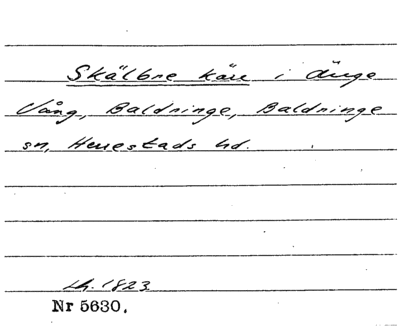 Skälbre kärr i änge
Vång, Baldringe, Baldringe
sn, Herrestads hd.
Lh. 1823
Nr 5630.